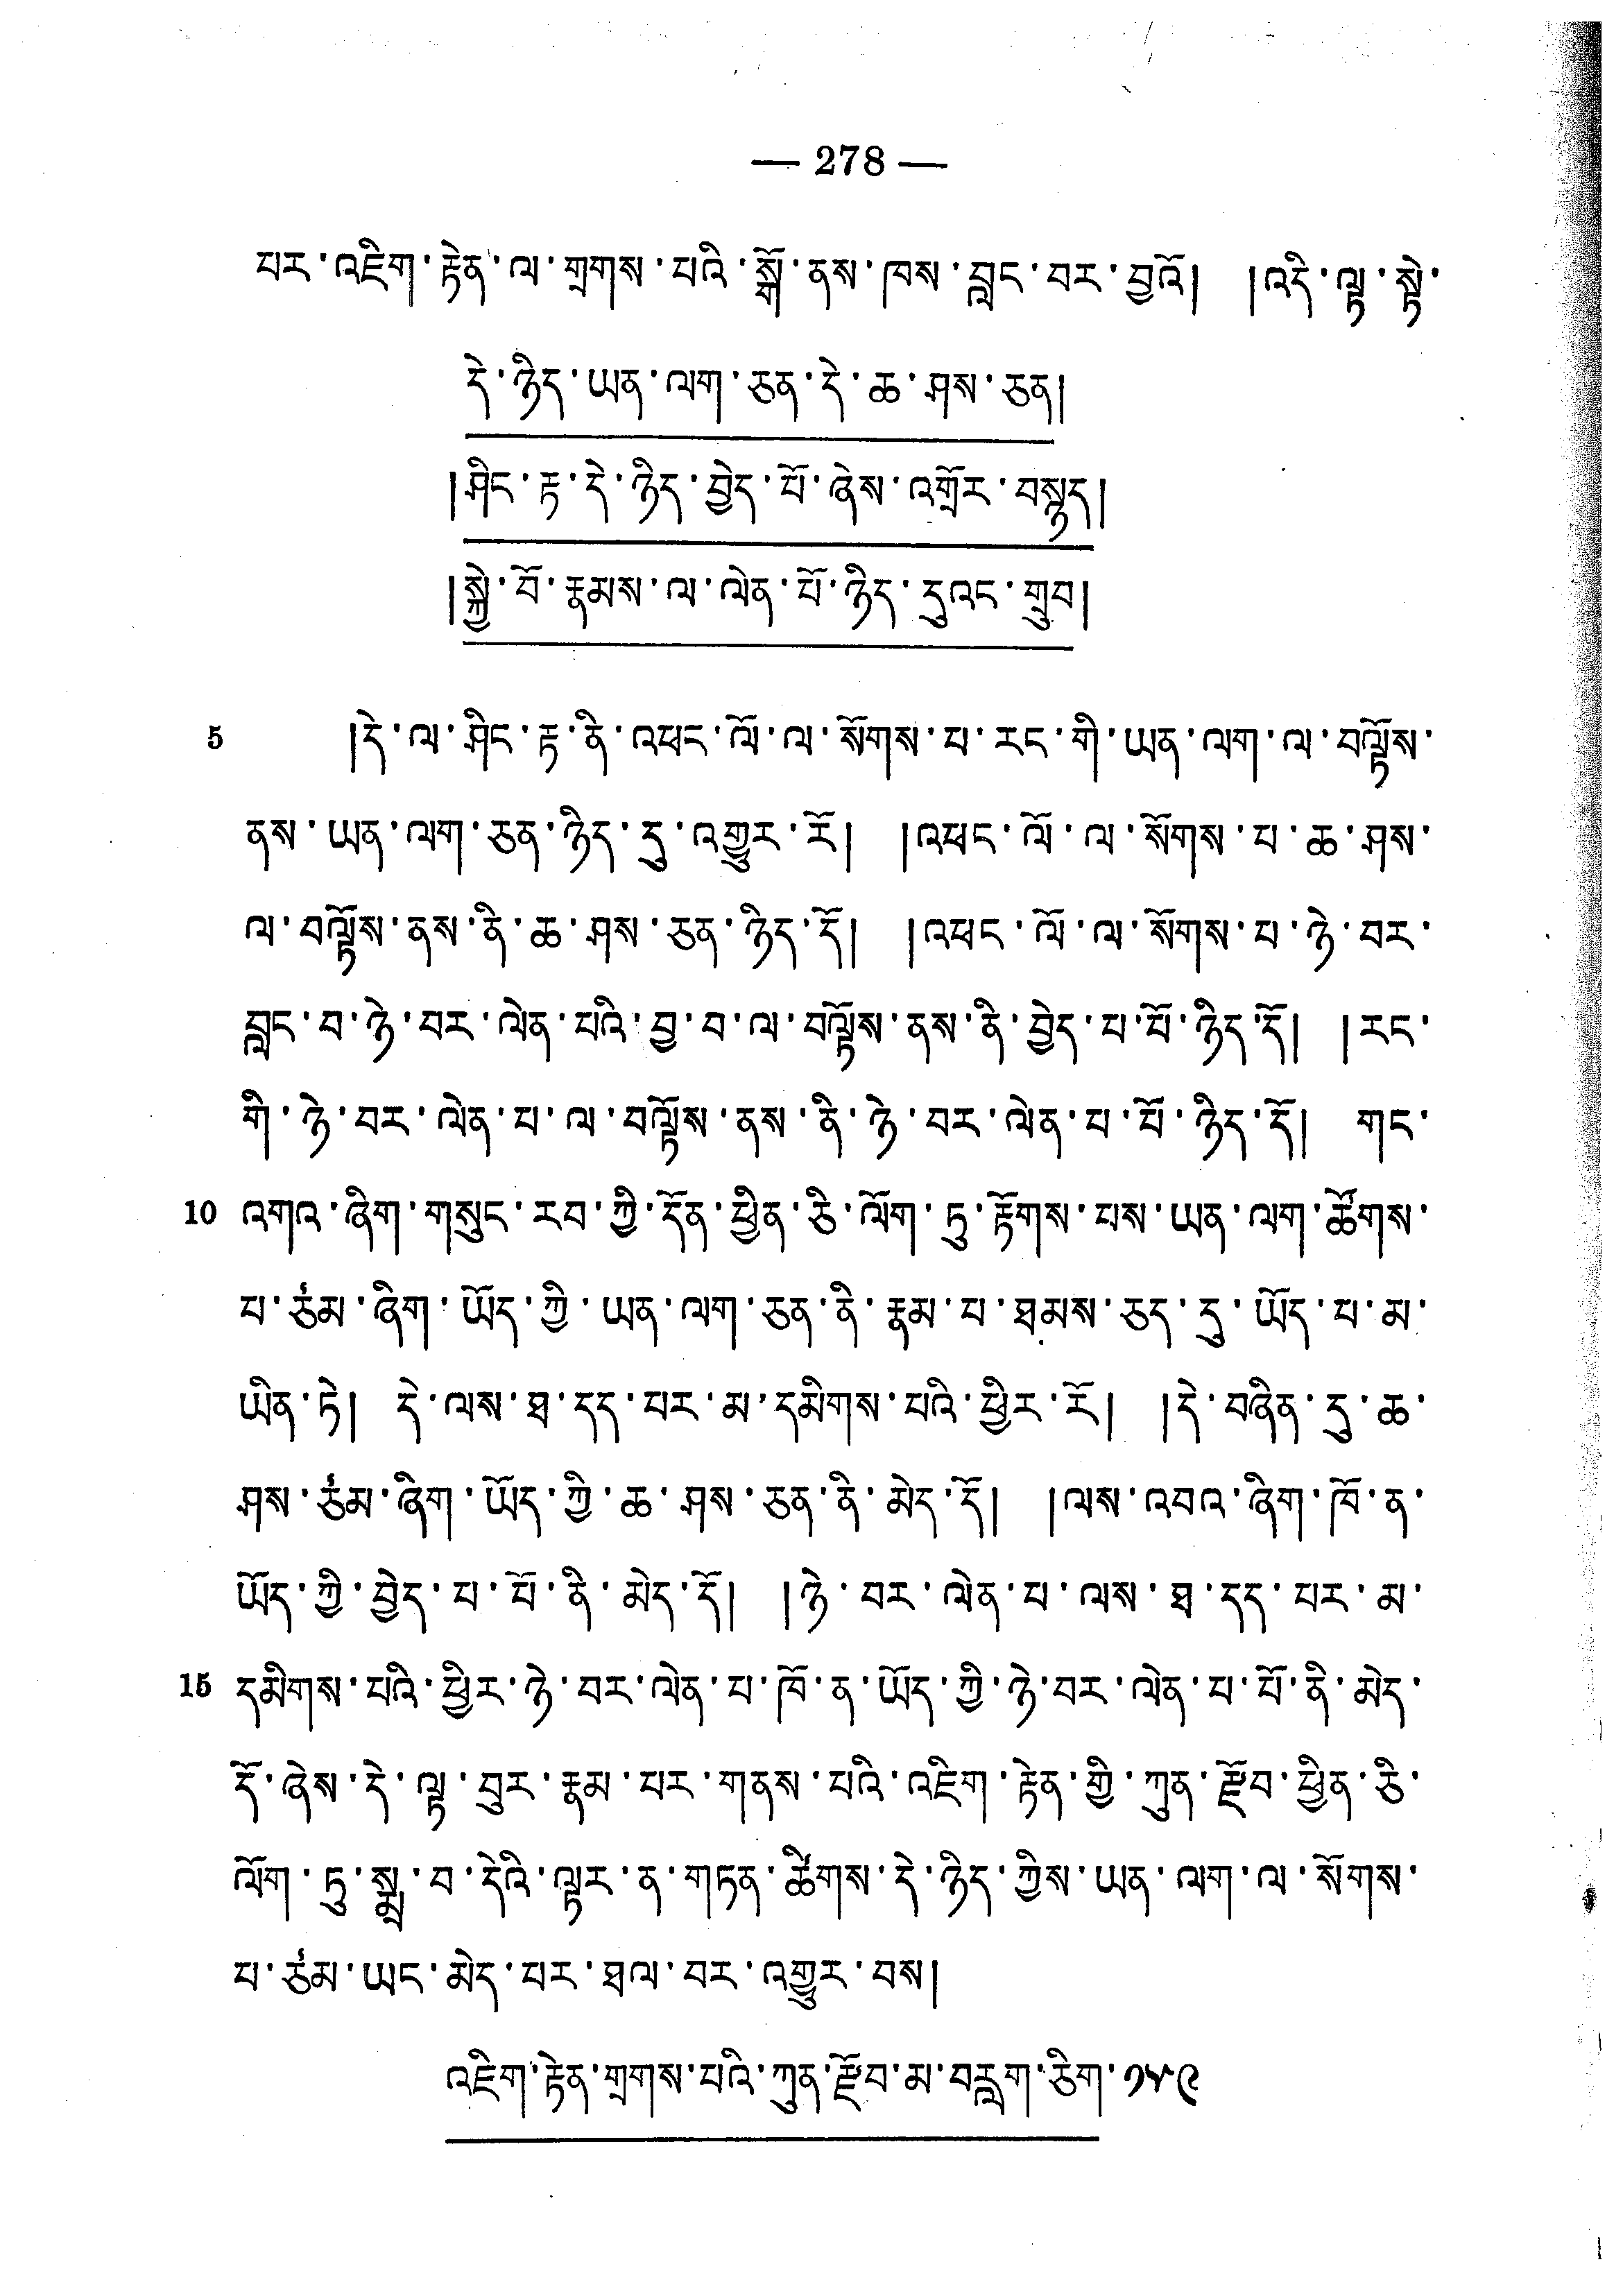 — 278 —
པར་འཇིག་རྟེན་ལ་གྲགས་པའི་སྒོ་ནས་ཁས་བླང་བར་བྱའོ། །འདི་ལྟ་སྟེ་
དེ་ཉིད་ཡན་ལག་ཅན་དེ་ཆ་ཤས་ཅན།
།ཤིང་རྟ་དེ་ཉིད་བྱེད་པོ་ཞེས་འགྲོར་བསྙད།
།སྐྱེ་བོ་རྣམས་ལ་ལེན་པོ་ཉིད་དུའང་གྲུབ།
5 །དེ་ལ་ཤིང་རྟ་ནི་འཕང་ལོ་ལ་སོགས་པ་རང་གི་ཡན་ལག་ལ་བལྟོས་
ནས་ཡན་ལག་ཅན་ཉིད་དུ་འགྱུར་རོ། །འཕང་ལོ་ལ་སོགས་པ་ཆ་ཤས་
ལ་བལྟོས་ནས་ནི་ཆ་ཤས་ཅན་ཉིད་དོ། །འཕང་ལོ་ལ་སོགས་པ་ཉེ་བར་
བླང་བ་ཉེ་བར་ལེན་པའི་བྱ་བ་ལ་བལྟོས་ནས་ནི་བྱེད་པ་པོ་ཉིད་དོ། །རང་
གི་ཉེ་བར་ལེན་པ་ལ་བལྟོས་ནས་ནི་ཉེ་བར་ལེན་པ་པོ་ཉིད་དོ། གང་
10 འགའ་ཞིག་གསུང་རབ་ཀྱི་དོན་ཕྱིན་ཅི་ལོག་ཏུ་རྟོགས་པས་ཡན་ལག་ཚོགས་
པ་ཙམ་ཞིག་ཡོད་ཀྱི་ཡན་ལག་ཅན་ནི་རྣམ་པ་ཐམས་ཅད་དུ་ཡོད་པ་མ་
ཡིན་ཏེ། དེ་ལས་ཐ་དད་པར་མ་དམིགས་པའི་ཕྱིར་རོ། །དེ་བཞིན་དུ་ཆ་
ཤས་ཙམ་ཞིག་ཡོད་ཀྱི་ཆ་ཤས་ཅན་ནི་མེད་དོ། །ལས་འབའ་ཞིག་ཁོ་ན་
ཡོད་ཀྱི་བྱེད་པ་པོ་ནི་མེད་དོ། །ཉེ་བར་ལེན་པ་ལས་ཐ་དད་པར་མ་
15 དམིགས་པའི་ཕྱིར་ཉེ་བར་ལེན་པ་ཁོ་ན་ཡོད་ཀྱི་ཉེ་བར་ལེན་པ་པོ་ནི་མེད་
དོ་ཞེས་དེ་ལྟ་བུར་རྣམ་པར་གནས་པའི་འཇིག་རྟེན་གྱི་ཀུན་རྫོབ་ཕྱིན་ཅི་
ལོག་ཏུ་སྨྲ་བ་དེའི་ལྟར་ན་གཏན་ཚིགས་དེ་ཉིད་ཀྱིས་ཡན་ལག་ལ་སོགས་
པ་ཙམ་ཡང་མེད་པར་ཐལ་བར་འགྱུར་བས།
འཇིག་རྟེན་གྲགས་པའི་ཀུན་རྫོབ་མ་བརླག་ཅིག་༡༥༩